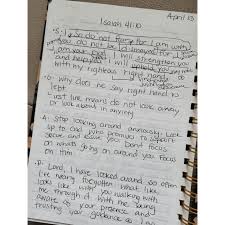 April 13
Isaiah 41:10
S: do not fear for I am with
you do not be dismayed for I
am your God I will strengthen you
and help you I will uphold you
my righteous right hand
O: Why does he say right hand vs
left
Last line means do not look away
or look about in anxiety
A: Stop looking around anxiously. Look
up to God who promises to support
secure and leave you Dont focus
on whats going on around you focus
on Him
P: Lord, I have looked around too often
I've nearly forgotten what life
looks like with you walking with
me through it with me
aware of your presence and
trusting your guidance as I